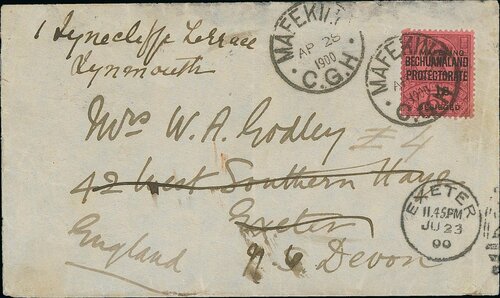 1 Tynecliffe Terrace
Lynmouth
MAFEKING
AP 26
1900
C.G.H
MAFEKING
C.G.H
MAFEKING
BECHUANALAND
PROTECTORATE
BESIEGED
Mrs W. A. Godley
£4
42 West Southern Haye
Exeter
England
N. Devon
EXETER
11.45PM
JU 23
00